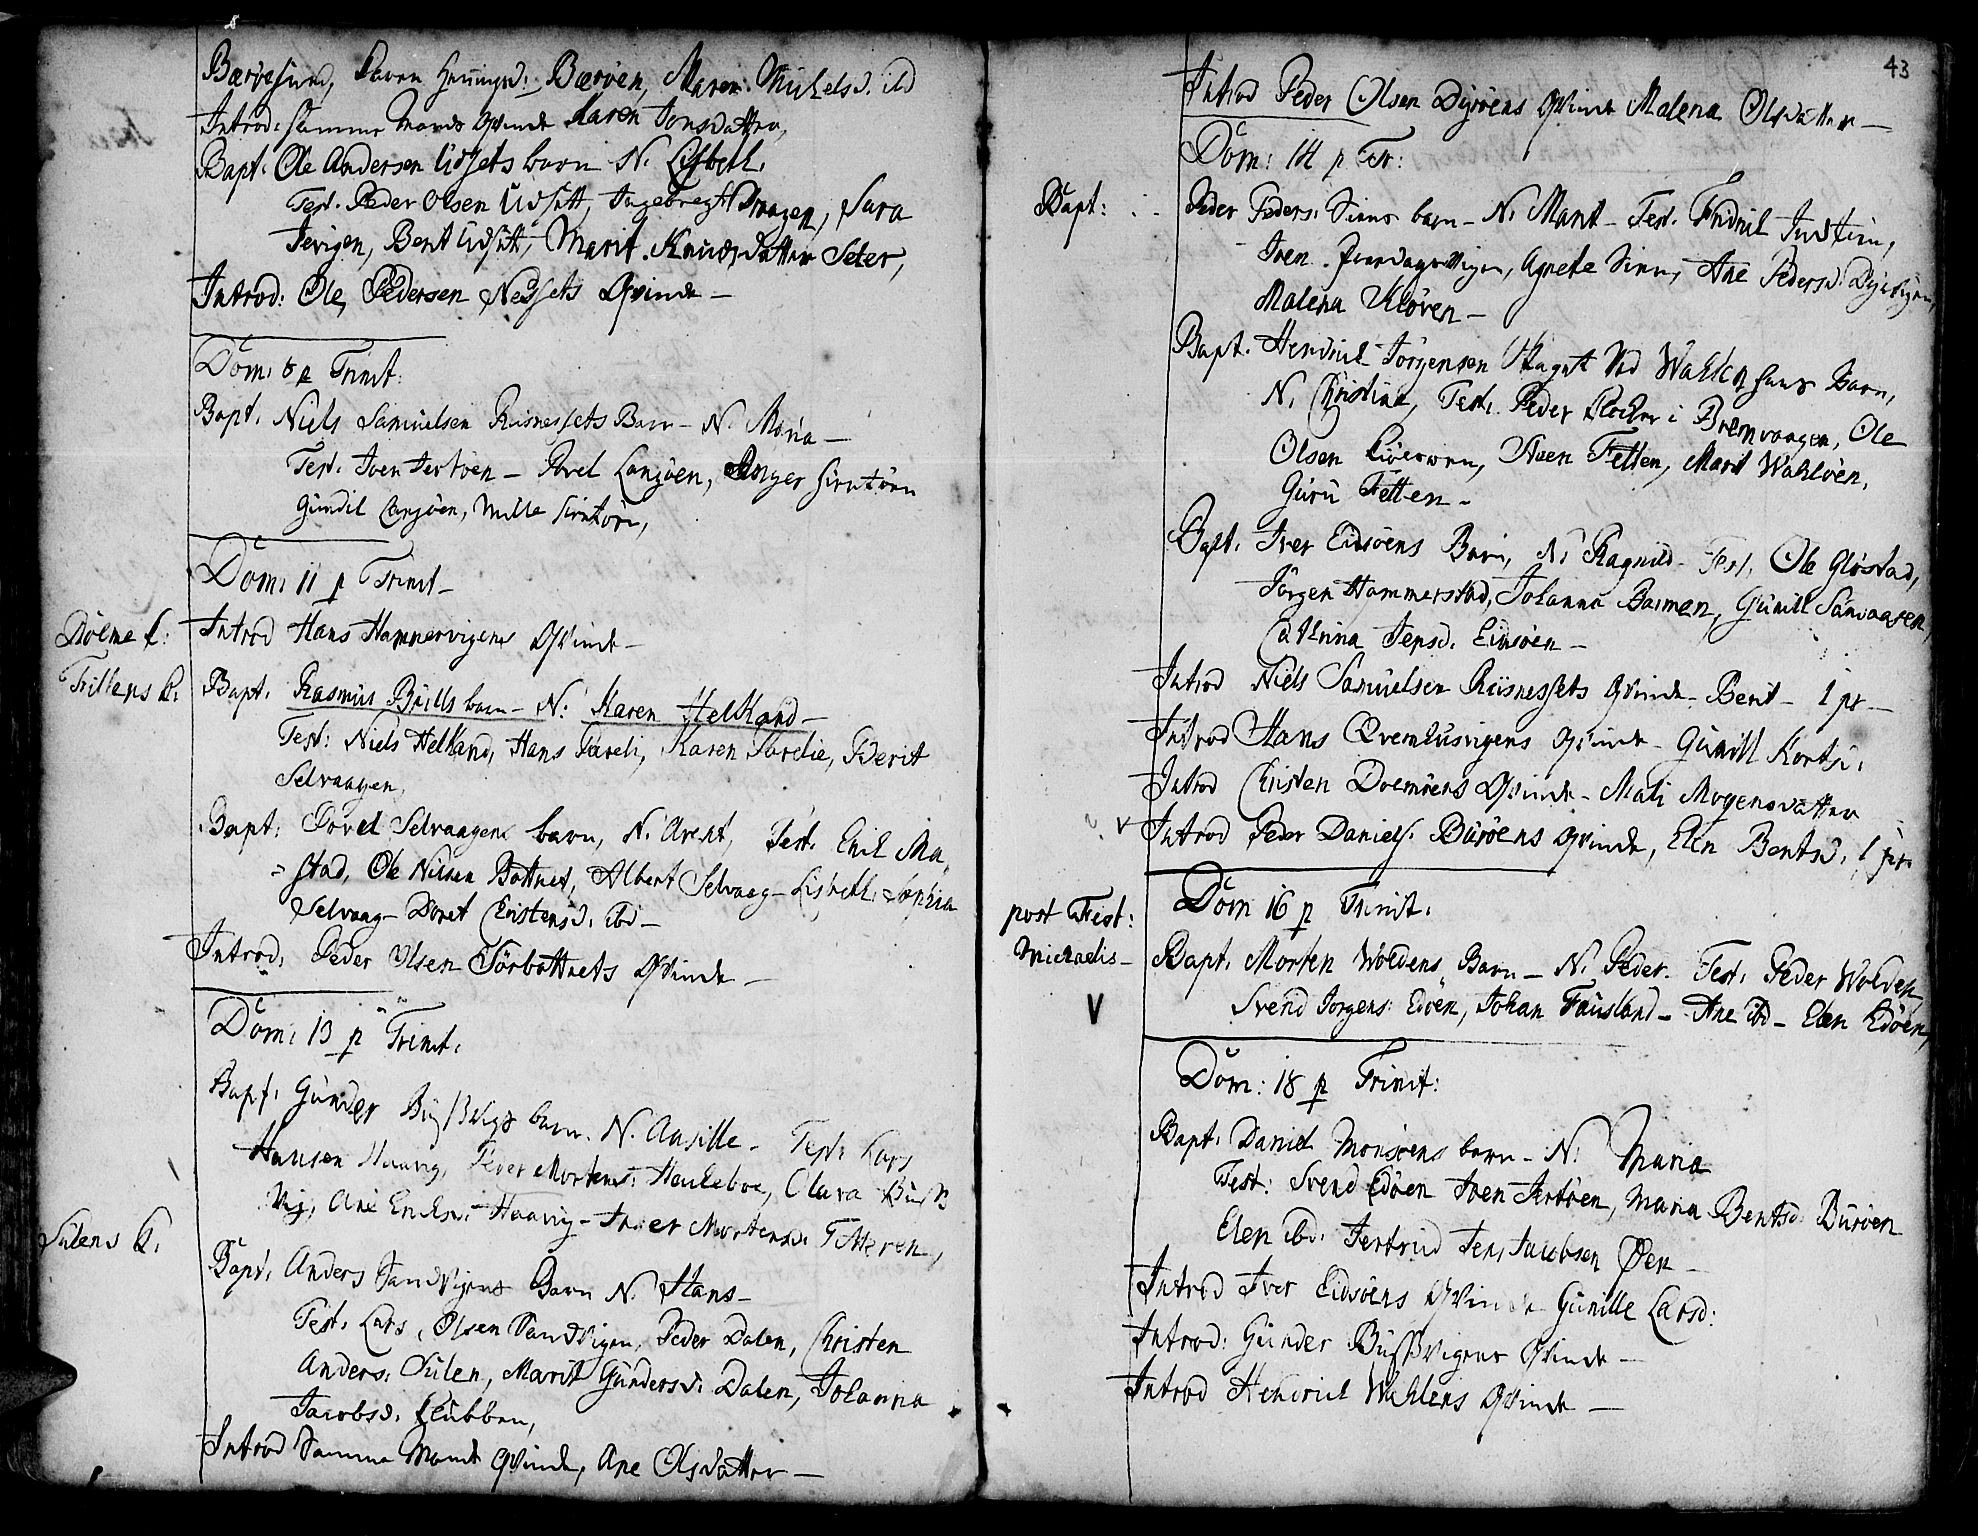 Introd: samme Mands Qvinde Karen Jonsdatter,
Bapt: Ole Andersen Udsets barn N. Lisbeth.
Test. Peder Olsen Udsætt, Ingebregt Vaagen, Sara
Jevigen, Berit Udsætt, Marit Knudsdatter Seter,
Introd: Ole Pedersen Nedsets Qvinde —
Dom: 8 p Trinit:
Bapt. Niels Samuelsen Riisnessets Barn — N. Maria —
Test. Iven Jertøen — Povel Langøen,
Gundil Langøen, Mille
Dom: 11 p Trinit —
Dolme k: Introd Hans Hamnervigens Qvinde —
Trillens k. Bapt. Rasmus Brills barn — N: Karen Helkand —
Test: Niels Helkand, Hans Sareli, Karen Sarelie, Berit
Selvaagen,
Bapt: Povel Selvaagens barn, N. Arent, Test. Erik Ma
= stad, Ole Nilsen Bottnet, Albert Selvaag — Lisbeth Sophia
Selvaag — Doret Christensd. ibd —
Introd: Peder Olsen Sørbottnets Qvinde —
Dom: 13 p Trinit.
Bapt: Gunder barn. N. Ansille — Test: Lars
Hansen Haavig, Peder Mortens: Haukeboe, Olava
Vig, Ane Ericksd: Haavig — Mortensd: Titteren,
Sulens k. Bapt. Anders Sandvigens Barn N. Hans —
Test. Lars Olsen Sandvigen, Peder Dalen, Christen
Anders: Sulen, Marit Gundersd: Dalen, Johanna
Jacobsd. Klubben,
Introd Samme Mands Qvinde, Ane Olsdatter —
43
Introd Peder Olsen Dyrøens Qvinde Malena Olsdatter —
Dom: 14 p Tr:
Bapt: Peder Peders: barn — N. Marit — Test.
Iven Agnete Ane Pedersd:
Malena Kløven —
Bapt. Hendrick Jørgensen Ved Wahlen hans Barn,
N. Christina, Test. Peder i Bremvaagen, Ole
Olsen Fetten, Marit Wahløen,
Guru Fetten —
Bapt. Iver Eidsøens Barn, N. Ragnild — Test. Ole Gløstad,
Jørgen Hammerstad, Johanna Gunild
Cathrina Jensd. Eidsøen —
Introd Niels Samuelsen Riisnessets Qvinde — Berit — 1 pr —
Introd Hans Qvernhusvigens Qvinde — Gunild
Introd Christen Dolmøens Qvinde — Mali Mogensdatter
v Introd Peder Daniels. Burøens Qvinde, Elen Bentsd. 1 pr.
post Fest: Dom 16 p Trinit:
Michaelis — Bapt. Morten Woldens Barn — N. Peder. Test. Peder Wolden
V Svend Jorgens: Edøen, Johan Fausland — Ane ibd — Elen Edøen,
Dom: 18 p Trinit:
Bapt: Daniel Monsøens barn — N: Maria
Test: Svend Edøen Iven Jertøen, Maria Bentsd: Burøen
Elen ibd. Jertrud Jens Jacobsen Øen —
Introd Iver Eidsøens Qvinde Gunille Larsd:
Introd: Gunder Qvinde —
Introd Hendrick Wahlens Qvinde —